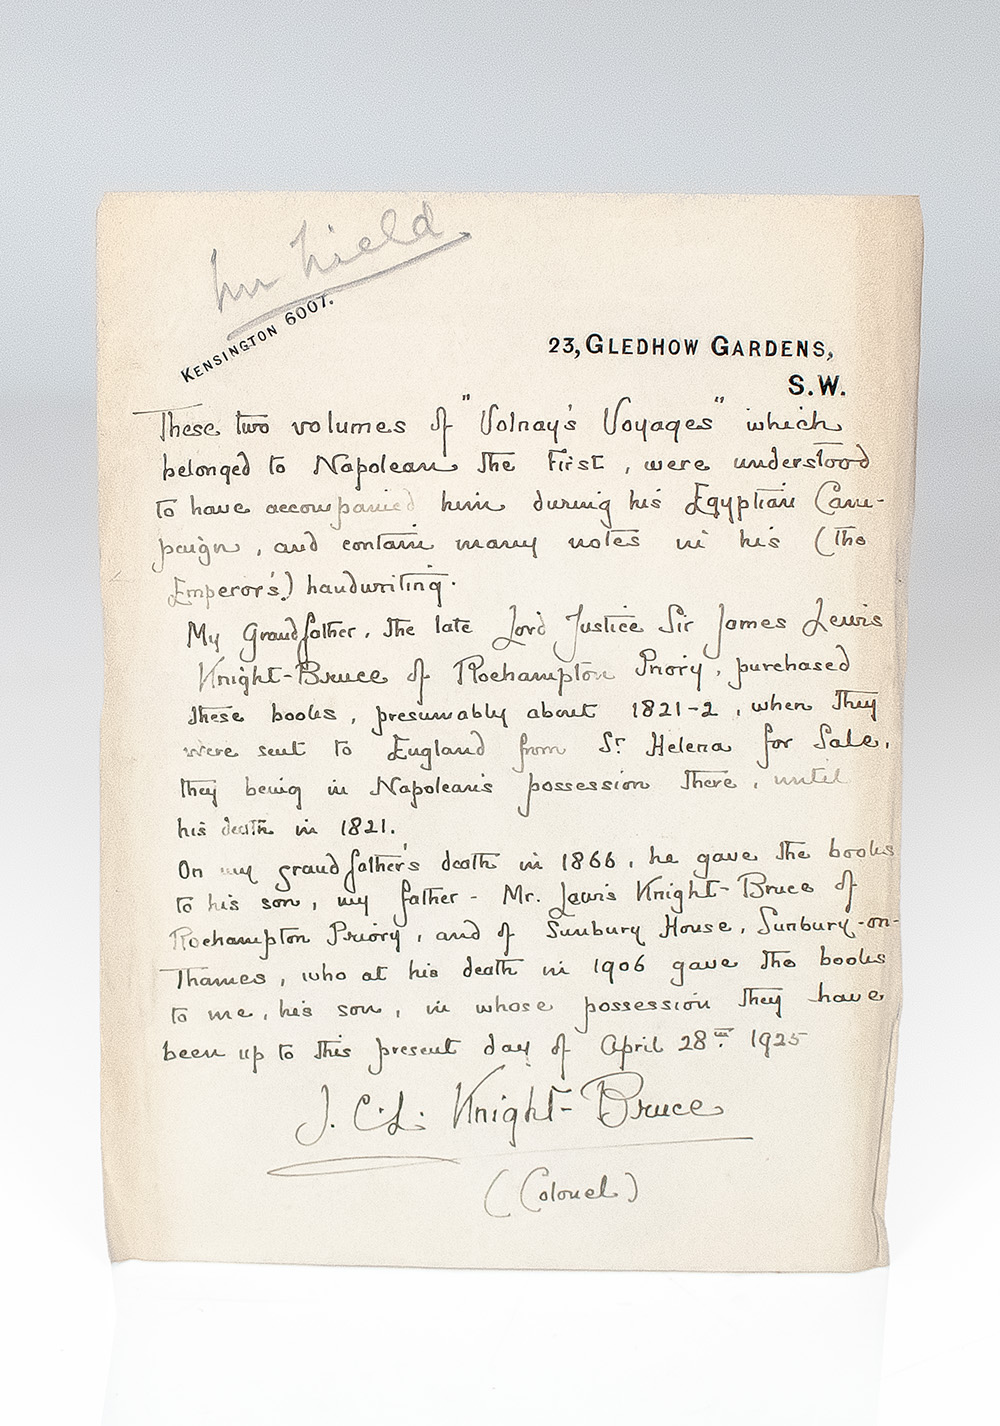 Mr Field
KENSINGTON 6007.
23, GLEDHOW GARDENS,
S.W.
These two volumes of "Volnay's Voyages" which
belonged to Napolean the First, were understood
to have accompanied him during his Egyptian Cam-
paign, and contain many notes in his (the
Emperor's) handwriting.
My Grandfather, the late Lord Justice Sir James Lewis
Knight-Bruce of Roehampton Priory, purchased
these books, presumably about 1821-2, when they
were sent to England from St. Helena for Sale,
they being in Napolean's possession there, until
his death in 1821.
On my grandfather's death in 1866, he gave the books
to his son, my father - Mr. Lewis Knight-Bruce of
Roehampton Priory, and of Sunbury House, Sunbury-on-
Thames, who at his death in 1906 gave the books
to me, his son, in whose possession they have
been up to this present day of April 28th. 1925
J. C. L. Knight-Bruce
(Colonel)